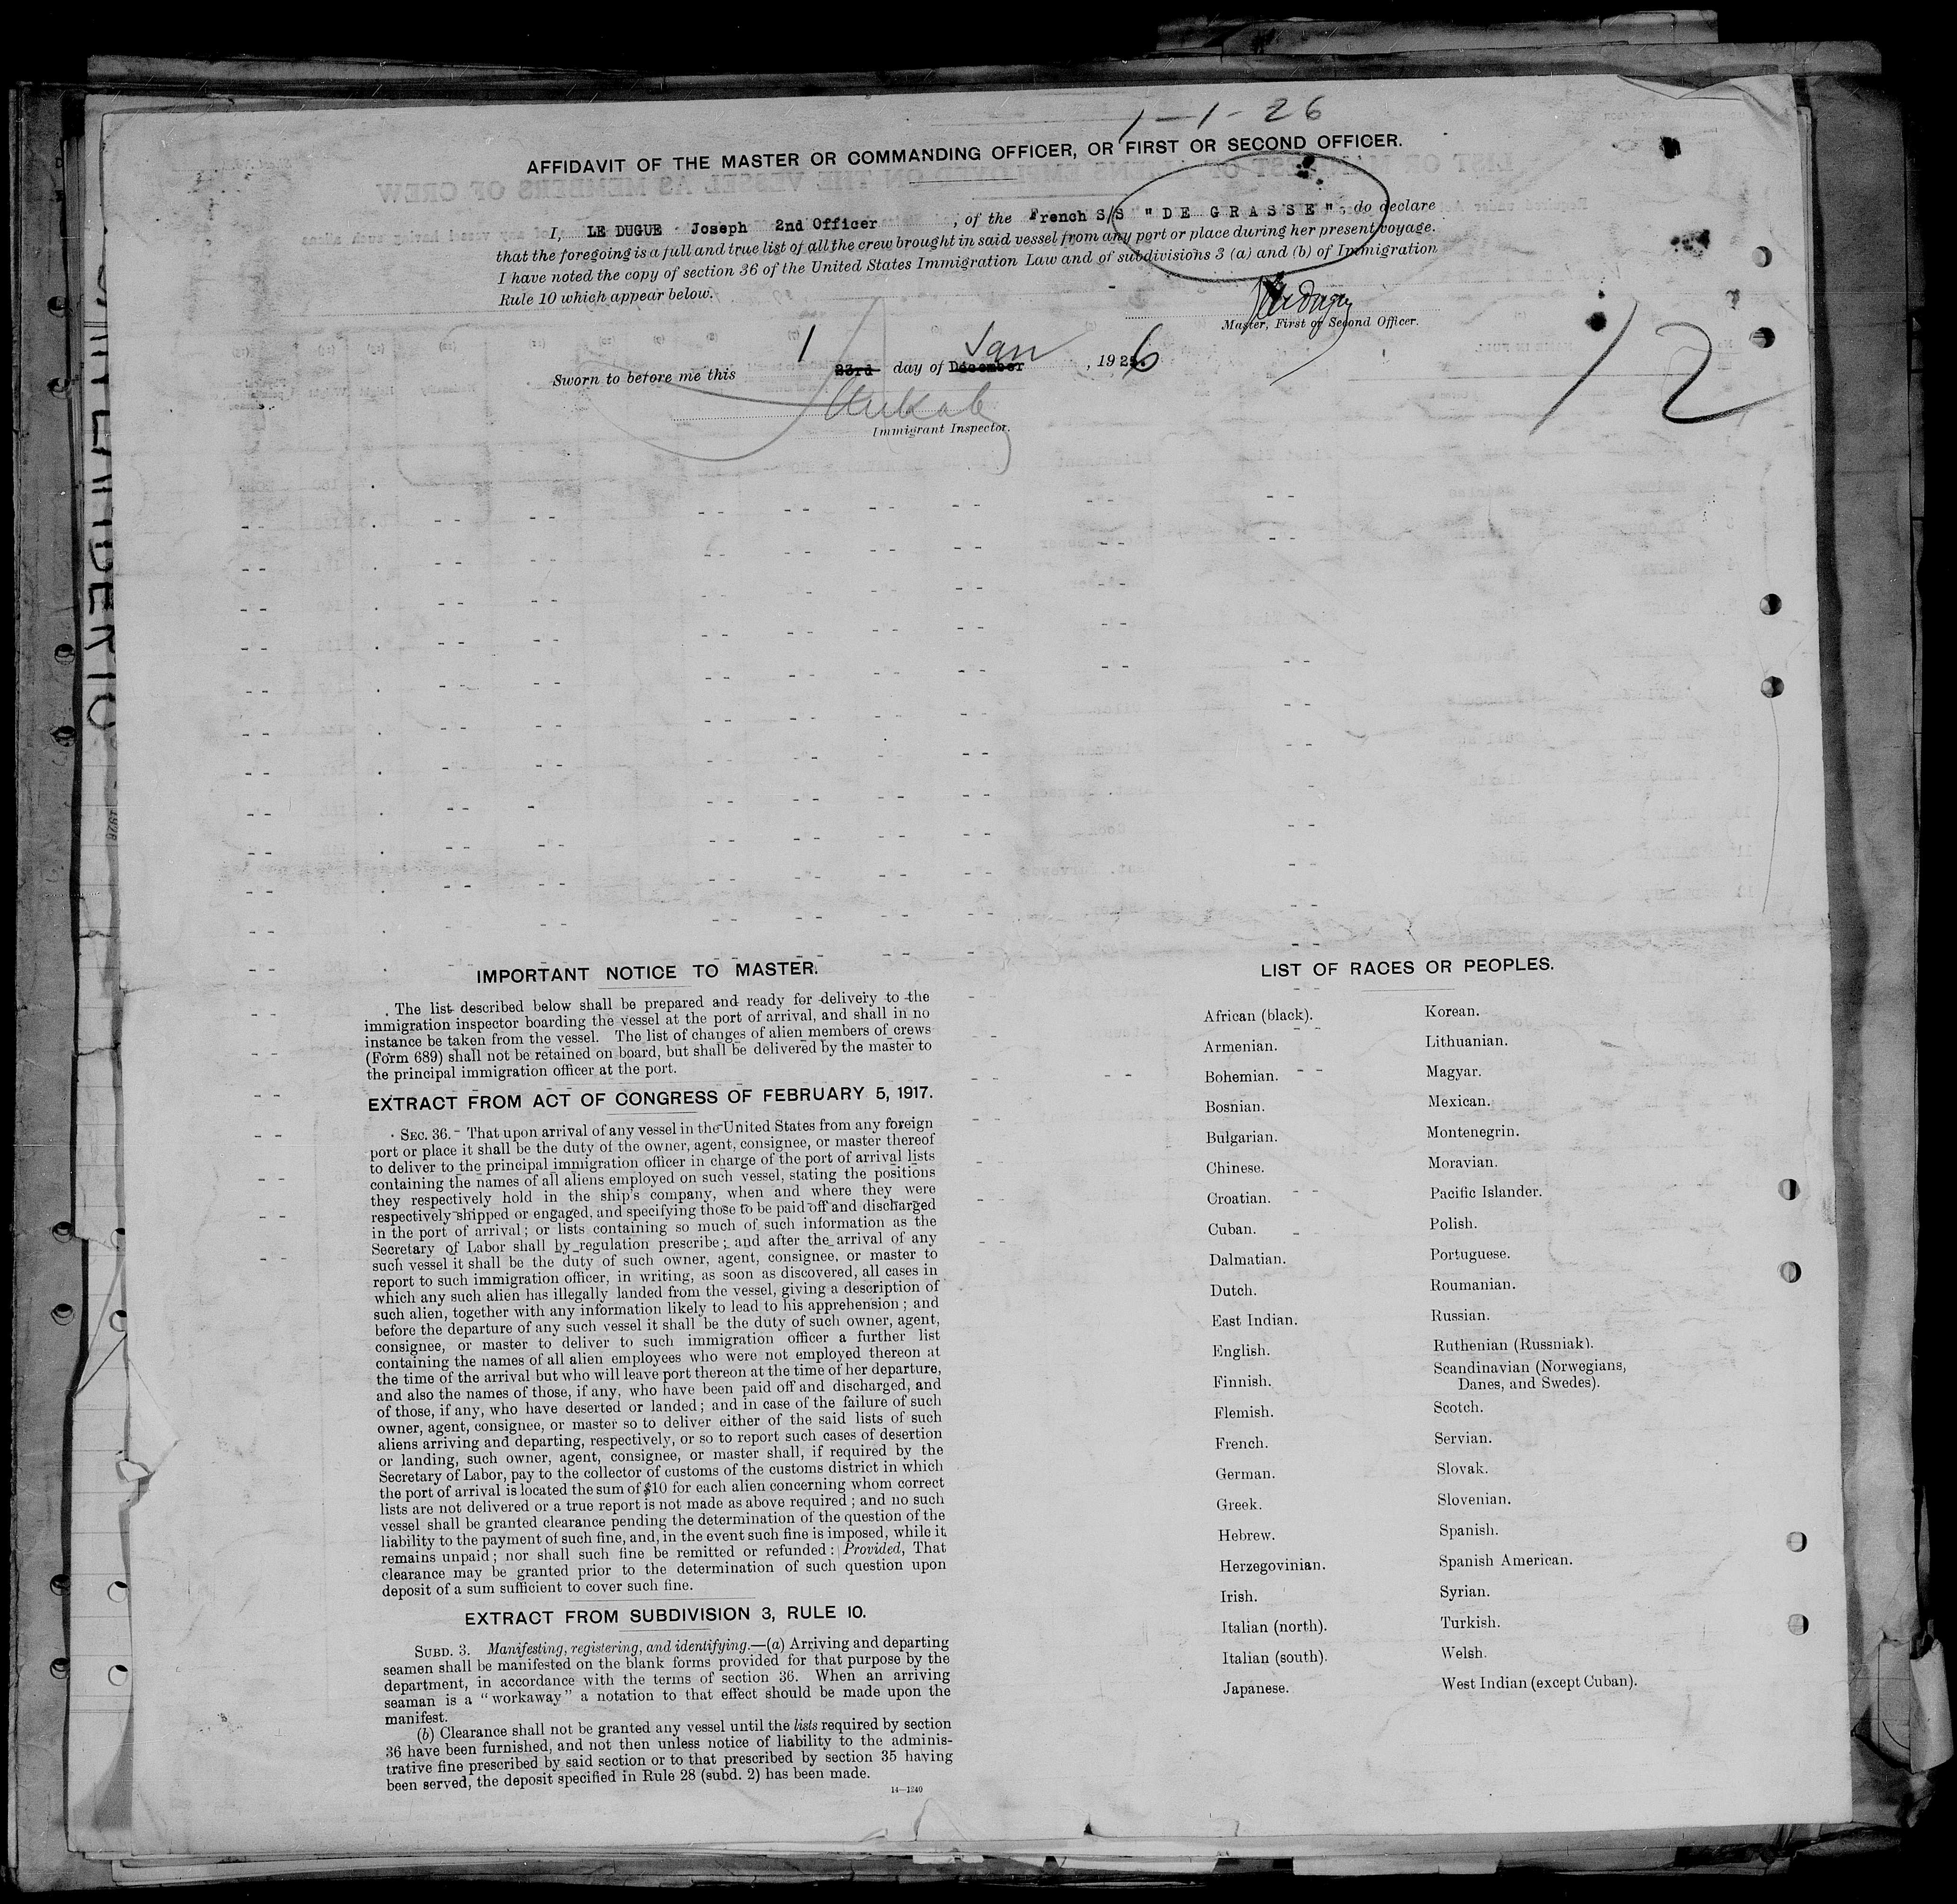 1-1-26
AFFIDAVIT OF THE MASTER OR COMMANDING OFFICER, OR FIRST OR SECOND OFFICER.
I, LE DUGUE Joseph 2nd Officer , of the French S/S "DE GRASSE", do declare
that the foregoing is a full and true list of all the crew brought in said vessel from any port or place during her present voyage.
I have noted the copy of section 36 of the United States Immigration Law and of subdivisions 3 (a) and (b) of Immigration
Rule 10 which appear below.
Master, First or Second Officer.
12
Sworn to before me this 1 23rd day of December Jan , 1926
Immigrant Inspector.
IMPORTANT NOTICE TO MASTER.
The list described below shall be prepared and ready for delivery to the
immigration inspector boarding the vessel at the port of arrival, and shall in no
instance be taken from the vessel. The list of changes of alien members of crews
(Form 689) shall not be retained on board, but shall be delivered by the master to
the principal immigration officer at the port.
EXTRACT FROM ACT OF CONGRESS OF FEBRUARY 5, 1917.
SEC. 36. That upon arrival of any vessel in the United States from any foreign
port or place it shall be the duty of the owner, agent, consignee, or master thereof
to deliver to the principal immigration officer in charge of the port of arrival lists
containing the names of all aliens employed on such vessel, stating the positions
they respectively hold in the ship's company, when and where they were
respectively shipped or engaged, and specifying those to be paid off and discharged
in the port of arrival; or lists containing so much of such information as the
Secretary of Labor shall by regulation prescribe; and after the arrival of any
such vessel it shall be the duty of such owner, agent, consignee, or master to
report to such immigration officer, in writing, as soon as discovered, all cases in
which any such alien has illegally landed from the vessel, giving a description of
such alien, together with any information likely to lead to his apprehension; and
before the departure of any such vessel it shall be the duty of such owner, agent,
consignee, or master to deliver to such immigration officer a further list
containing the names of all alien employees who were not employed thereon at
the time of the arrival but who will leave port thereon at the time of her departure,
and also the names of those, if any, who have been paid off and discharged, and
of those, if any, who have deserted or landed; and in case of the failure of such
owner, agent, consignee, or master so to deliver either of the said lists of such
aliens arriving and departing, respectively, or so to report such cases of desertion
or landing, such owner, agent, consignee, or master shall, if required by the
Secretary of Labor, pay to the collector of customs of the customs district in which
the port of arrival is located the sum of $10 for each alien concerning whom correct
lists are not delivered or a true report is not made as above required; and no such
vessel shall be granted clearance pending the determination of the question of the
liability to the payment of such fine, and, in the event such fine is imposed, while it
remains unpaid; nor shall such fine be remitted or refunded: Provided, That
clearance may be granted prior to the determination of such question upon
deposit of a sum sufficient to cover such fine.
EXTRACT FROM SUBDIVISION 3, RULE 10.
SUBD. 3. Manifesting, registering, and identifying.—(a) Arriving and departing
seamen shall be manifested on the blank forms provided for that purpose by the
department, in accordance with the terms of section 36. When an arriving
seaman is a "workaway" a notation to that effect should be made upon the
manifest.
(b) Clearance shall not be granted any vessel until the lists required by section
36 have been furnished, and not then unless notice of liability to the adminis-
trative fine prescribed by said section or to that prescribed by section 35 having
been served, the deposit specified in Rule 28 (subd. 2) has been made.
14—1240
LIST OF RACES OR PEOPLES.
African (black).
Armenian.
Bohemian.
Bosnian.
Bulgarian.
Chinese.
Croatian.
Cuban.
Dalmatian.
Dutch.
East Indian.
English.
Finnish.
Flemish.
French.
German.
Greek.
Hebrew.
Herzegovinian.
Irish.
Italian (north).
Italian (south).
Japanese.
Korean.
Lithuanian.
Magyar.
Mexican.
Montenegrin.
Moravian.
Pacific Islander.
Polish.
Portuguese.
Roumanian.
Russian.
Ruthenian (Russniak).
Scandinavian (Norwegians,
Danes, and Swedes).
Scotch.
Servian.
Slovak.
Slovenian.
Spanish.
Spanish American.
Syrian.
Turkish.
Welsh.
West Indian (except Cuban).